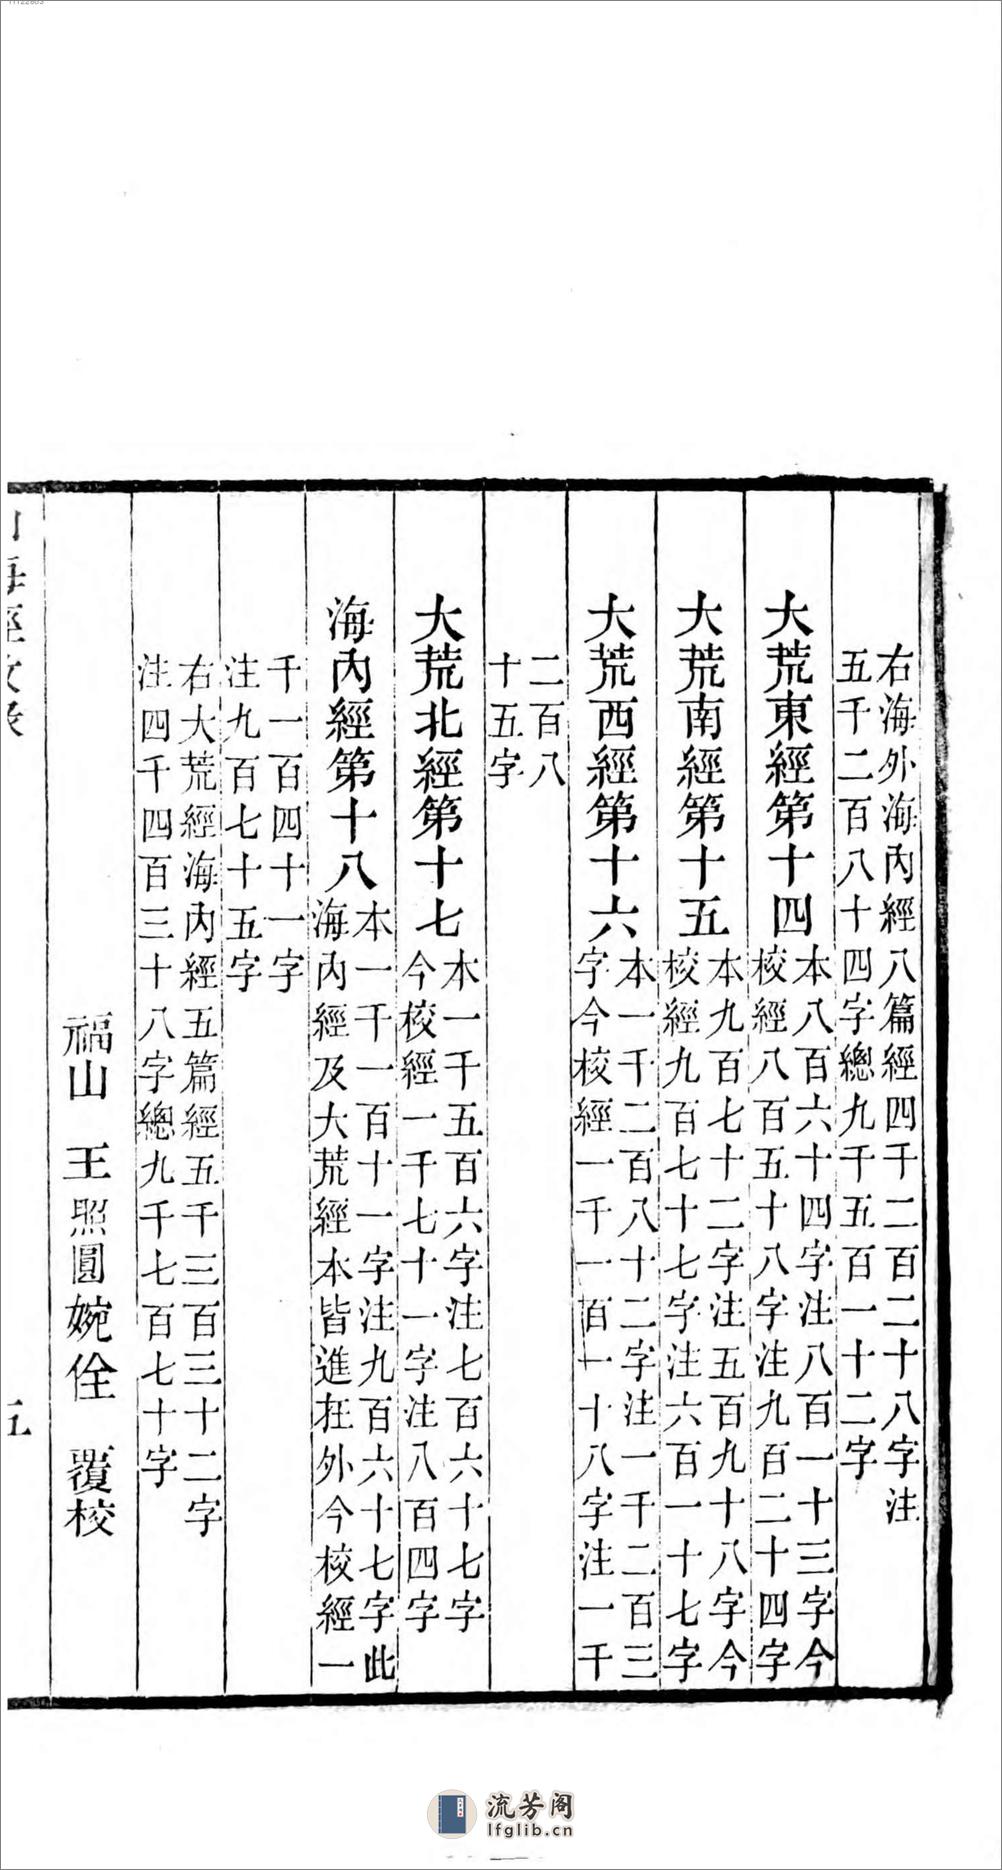 11122803
右海外海內經八篇經四千二百二十八字注
五千二百八十四字總九千五百一十二字
大荒東經第十四
本八百六十四字注八百一十三字今
校經八百五十八字注九百二十四字
大荒南經第十五
本九百七十二字注五百九十八字今
校經九百七十七字注六百一十七字
大荒西經第十六
本一千二百八十二字注一千二百三
字今校經一千一百一十八字注一千
二百八
十五字
大荒北經第十七
本一千五百六字注七百六十七字
今校經一千七十一字注八百四字
海內經第十八
本一千一百十一字注九百六十七字此
海內經及大荒經本皆進在外今校經一
千一百四十一字
注九百七十五字
右大荒經海內經五篇經五千三百三十二字
注四千四百三十八字總九千七百七十字
福山 王照圓婉佺 覆校
流芳阁
lfglib.cn